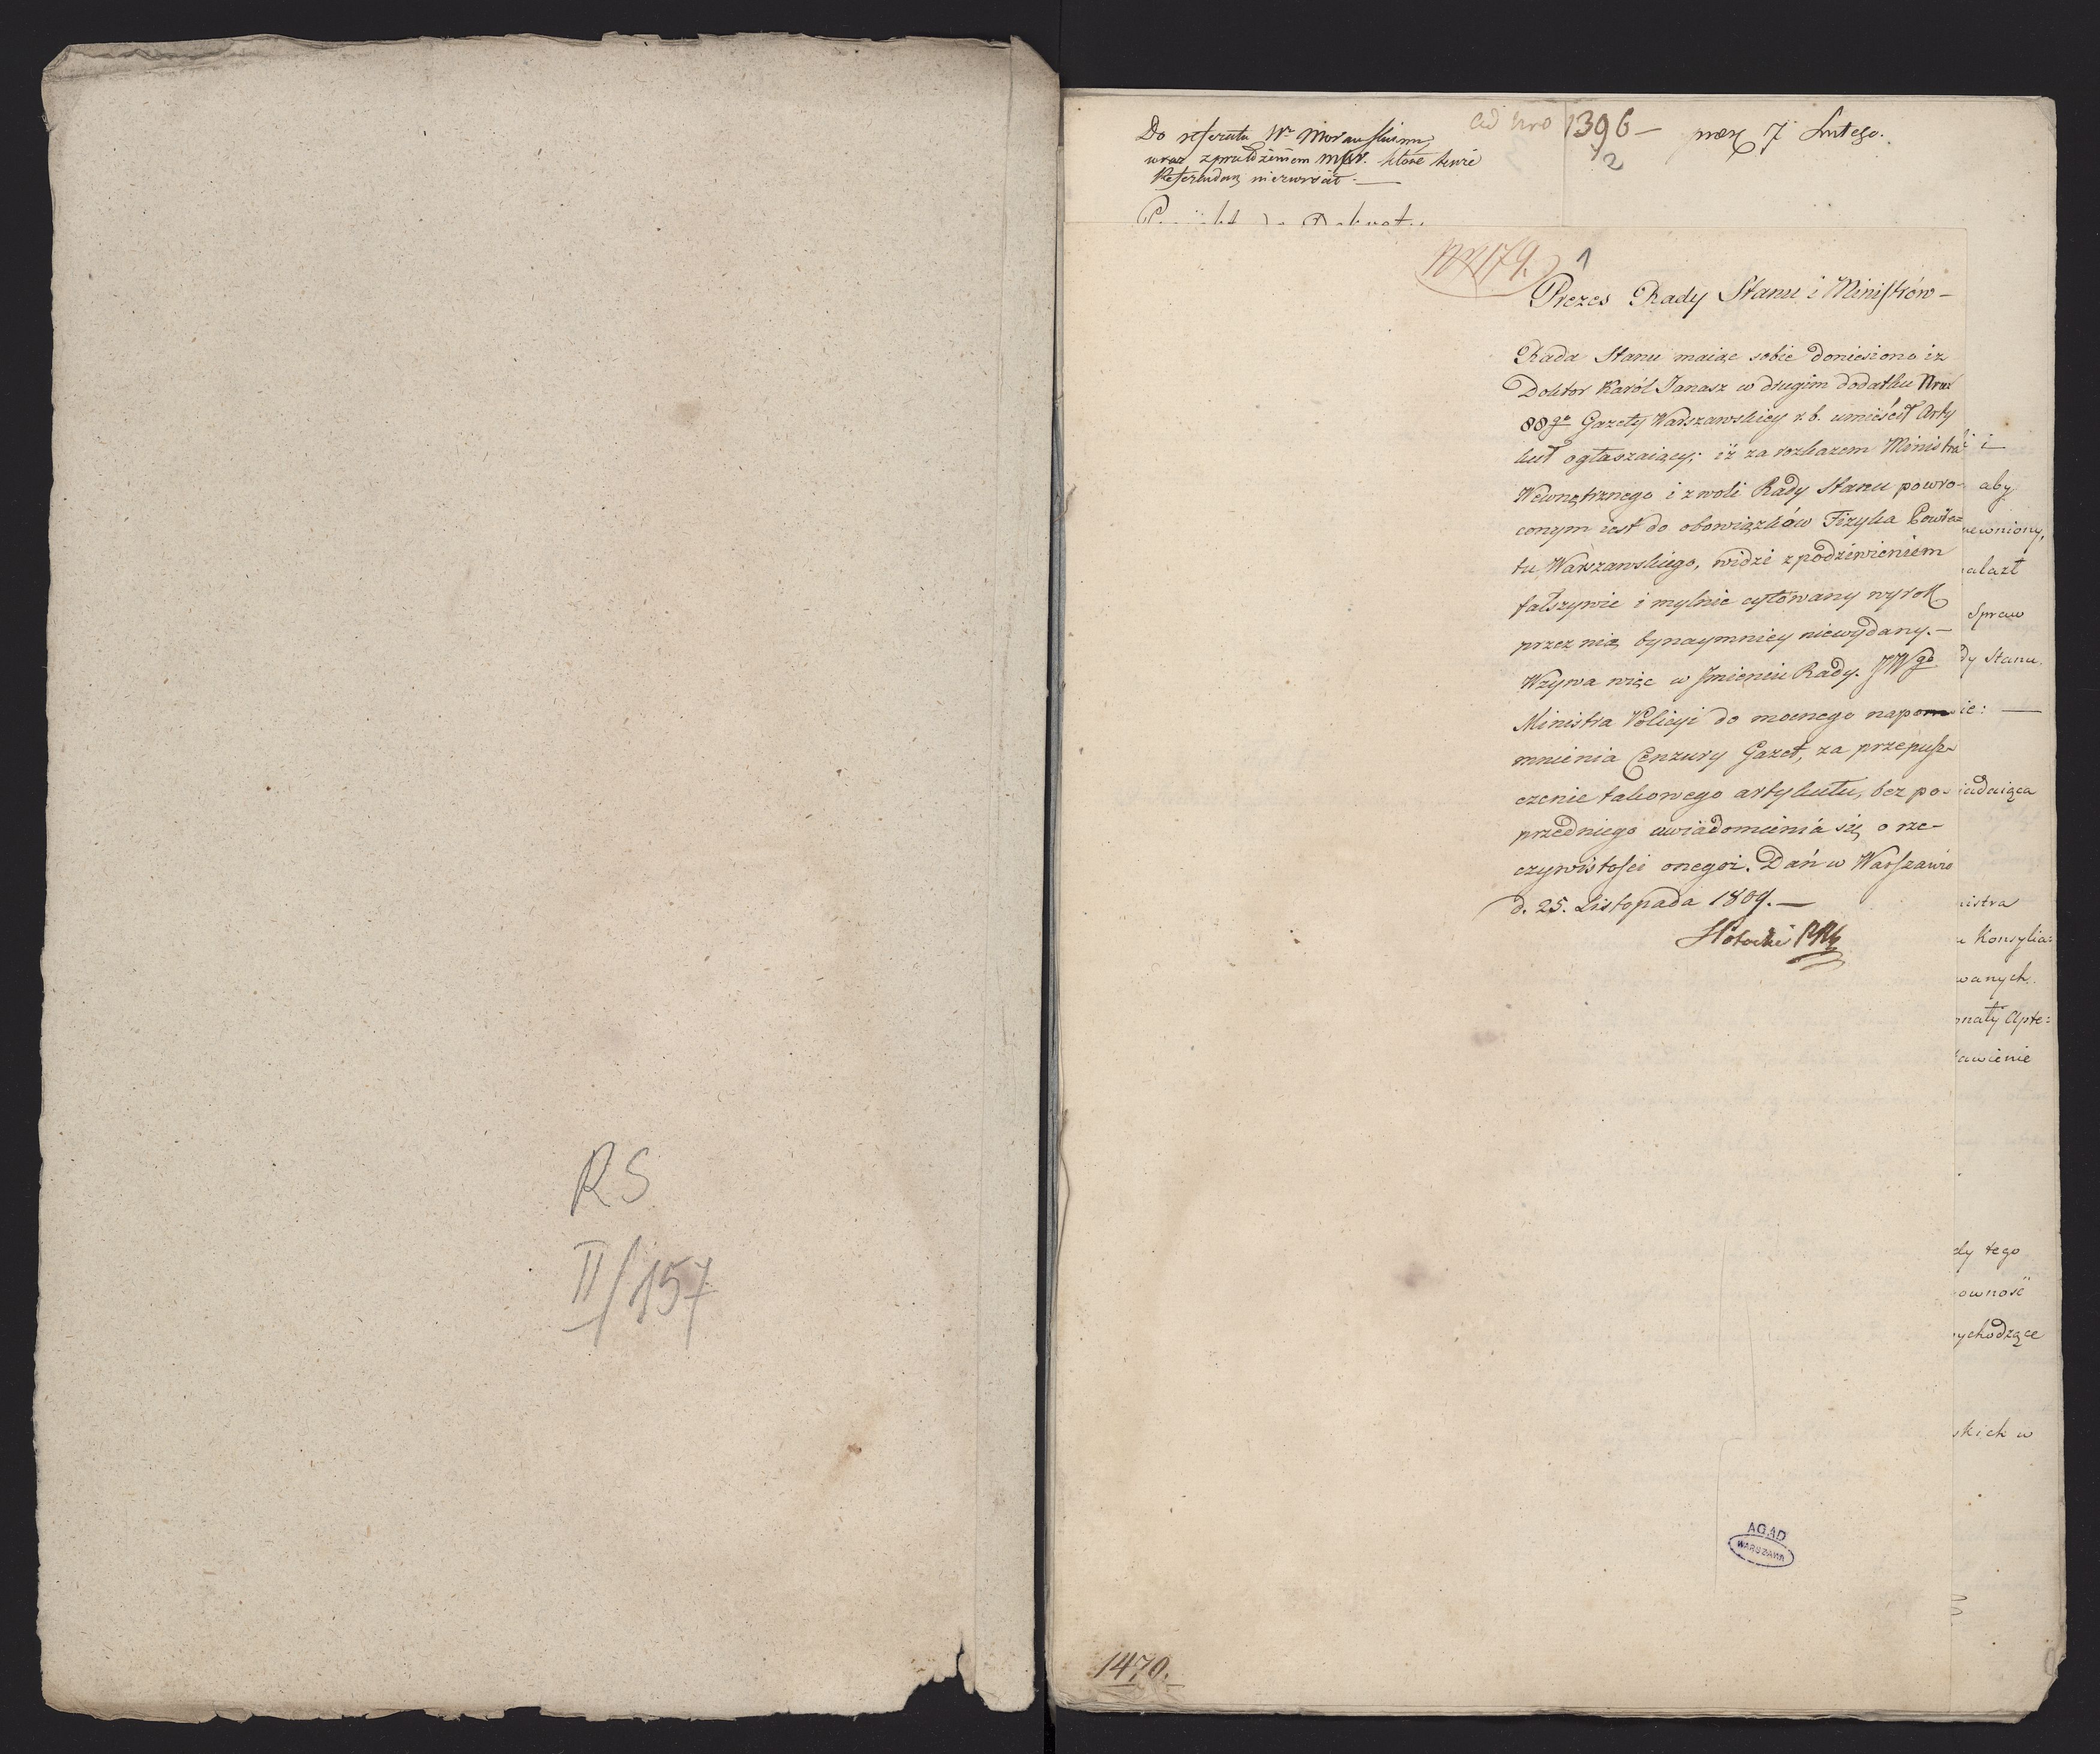 RS
II/157
Do referatu Wo Morawskiemu
wraz z
Referendarz niezwrócił. —
ad Nro 1396 — præs 7 Lutego.
1/2
Nr 179.
1
Prezes Rady Stanu i Ministrów —
Rada Stanu maiąc sobie doniesiono iż
Doktor Karól Janasz w drugim dodatku Nru
88go Gazety Warszawskiey r. b. umieścił Arty
kuł ogłaszaiący; iż za rozkazem Ministra
Wewnętrznego i z woli Rady Stanu powro-
conym iest do obowiązków Fizyka Powia=
tu Warszawskiego, widzi z podziwieniem
fałszywie i mylnie cytowany wyrok
przez nią bynaymniey niewydany. —
Wzywa więc w Jmieniu Rady. JWgo
Ministra Policyi do mocnego napo
mnienia Cenzury Gazet, za przepusz-
czenie takowego artykułu, bez po-
przedniego uwiadomienia się o rze-
czywistości onegoż. Dań w Warszawie
d. 25. Listopada 1809. —
i —
aby
ewniony,
alazł
Spraw
dy Stanu.
ie: —
iadaiąca
nistra
Konsylia:
wanych.
Apte:
awienie
dy tego
owność
ychodzące
skich w
AGAD
WARSZAWA
1470.